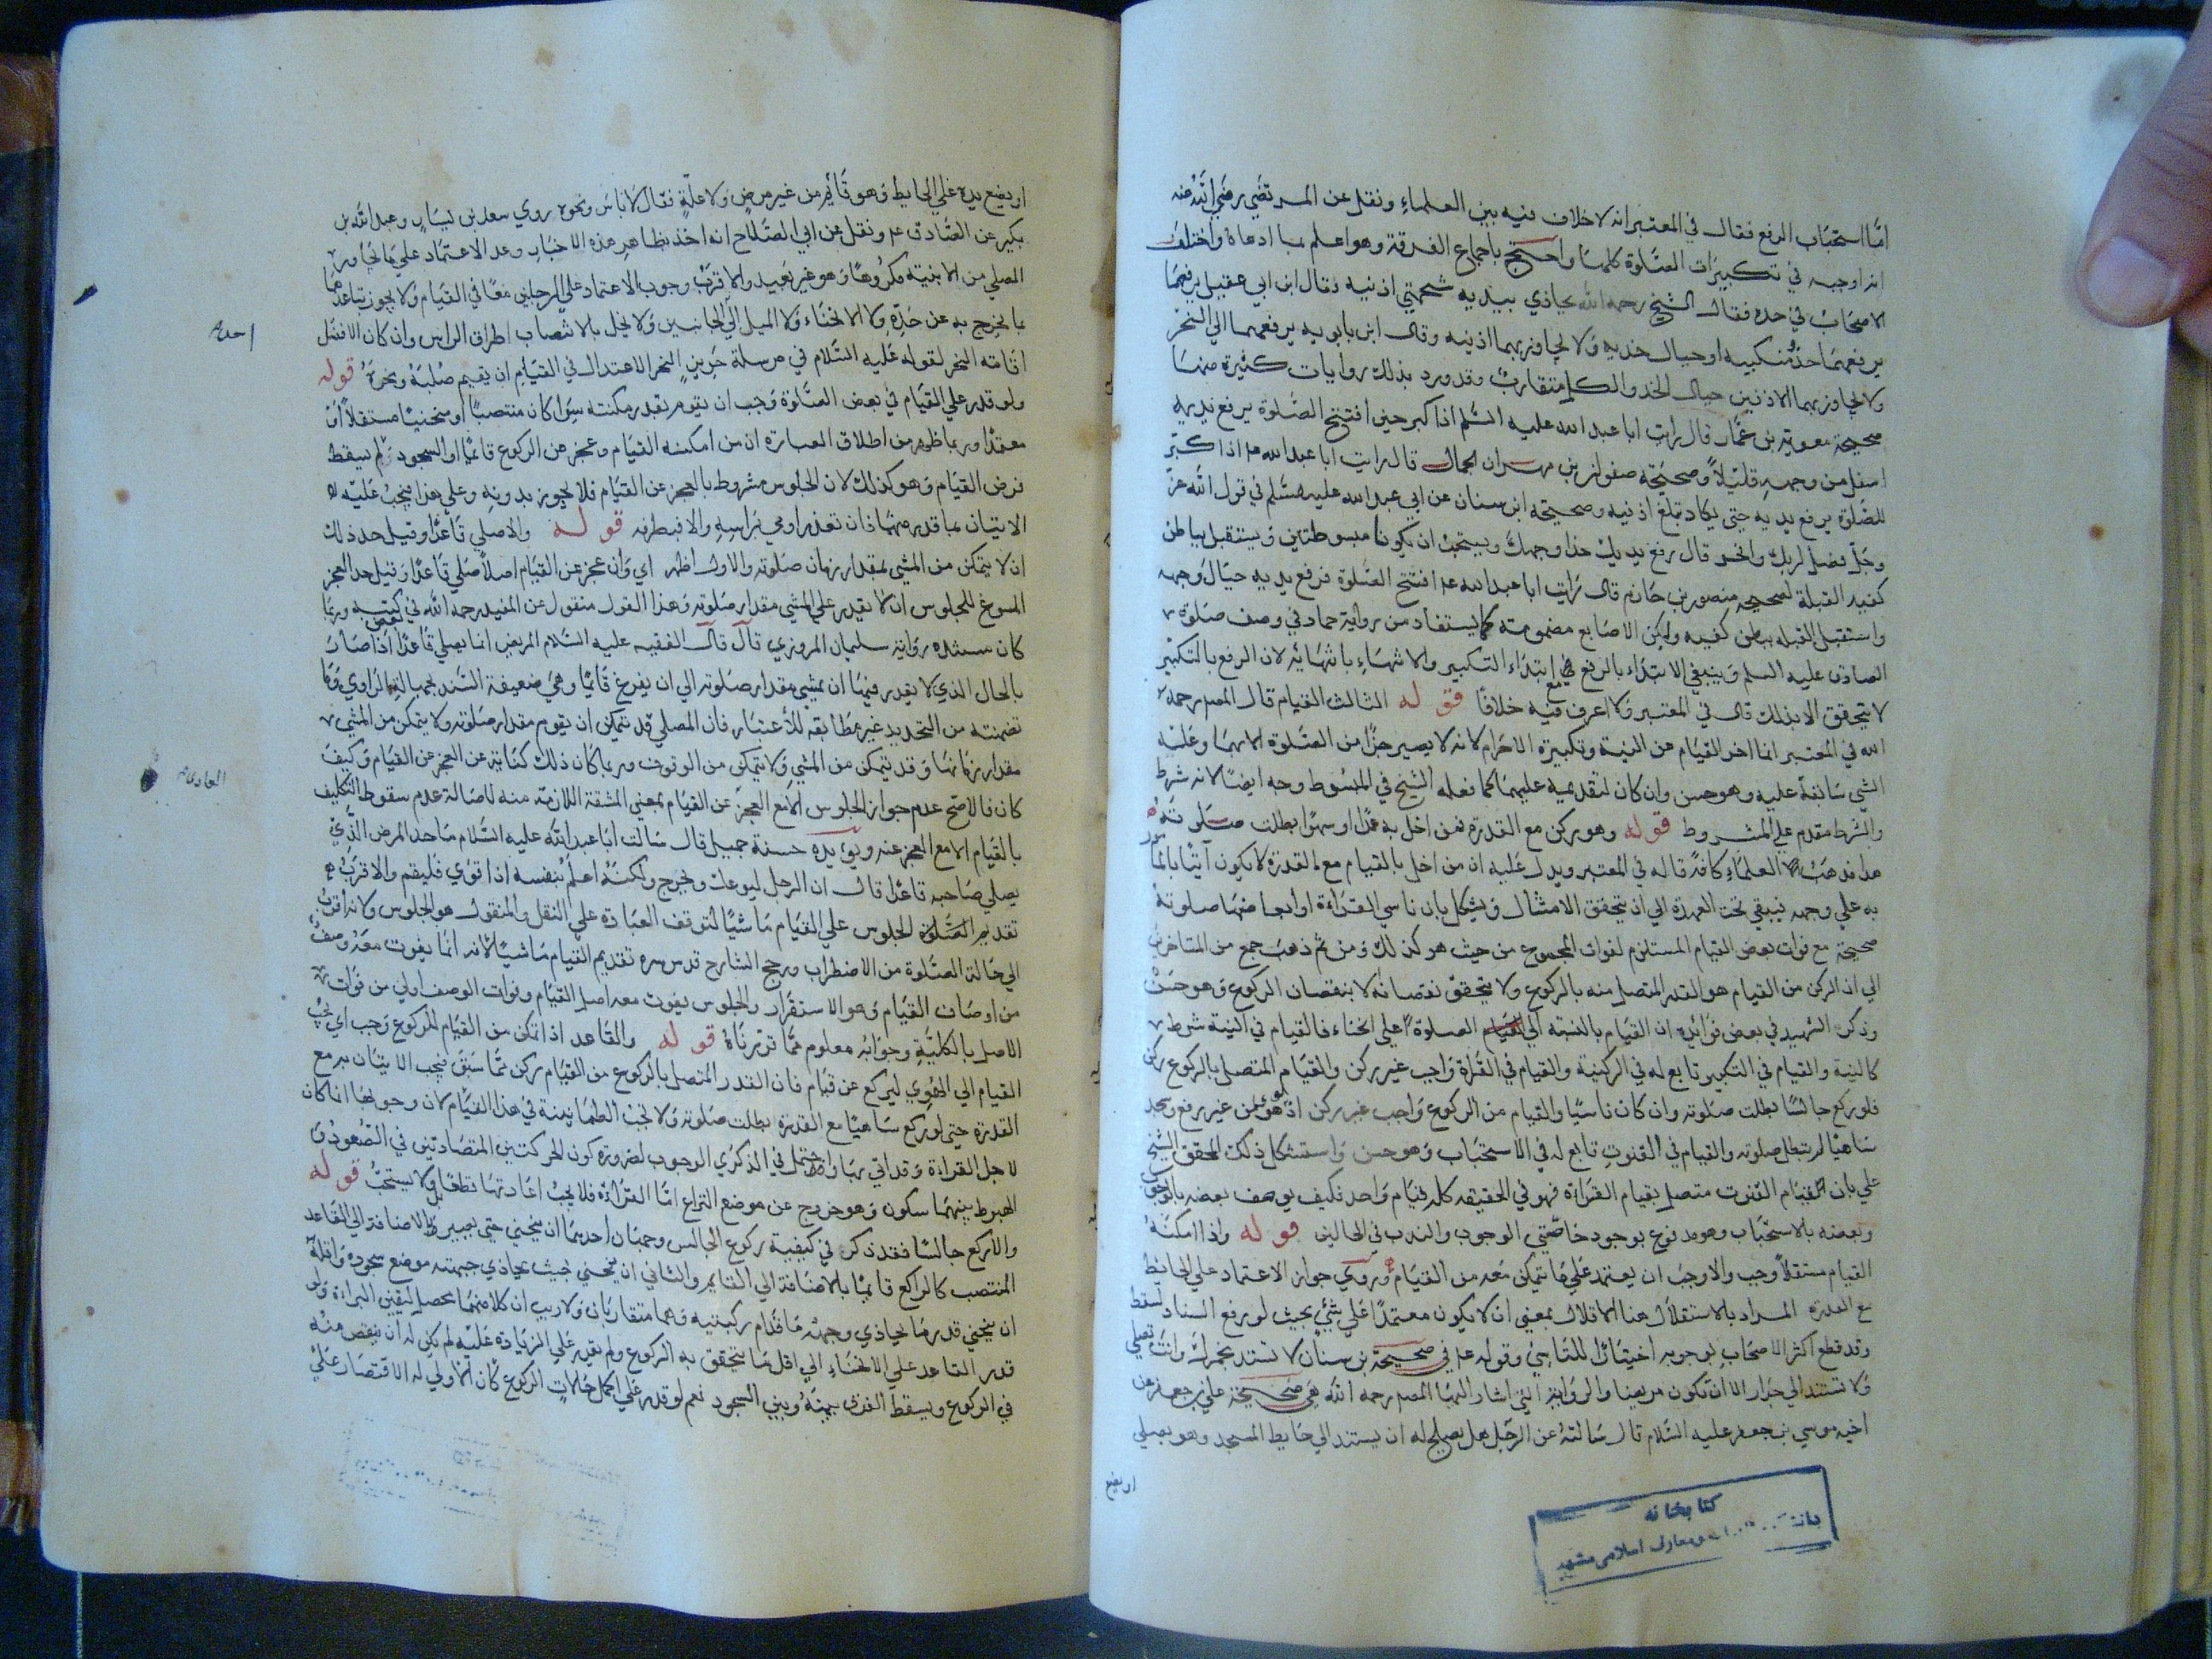 اما استحباب الرفع فقال في المعتبر انه لا خلاف فيه بين العلماء ونقل عن المرتضي رضي الله عنه
انه اوجبه في تكبيرات الصلوة كلها واحتج باجماع الفرقة وهو اعلم بما ادعاه واختلف
الاصحاب في حده فقال الشيخ رحمه الله يحاذي بيديه شحمتي اذنيه وقال ابن ابي عقيل يرفعهما
يرفعهما حذو منكبيه او حيال خديه ولا يجاوز بهما اذنيه وقال ابن بابويه يرفعهما الي النحر
ولا يجاوز بهما الاذنين حيال الخد والكل متقارب وقد ورد بذلك روايات كثيرة منها
صحيحة معوية بن عمار قال رايت ابا عبد الله عليه السلم اذا كبر حين افتتح الصلوة يرفع يديه
اسفل من وجهه قليلا وصحيحة صفوان بن مهران الجمال قال رايت ابا عبد الله ع اذا كبر
للصلوة يرفع يديه حتي يكاد تبلغ اذنيه وصحيحة ابن سنان عن ابي عبد الله عليه السلم في قول الله عز
وجل فصل لربك وانحر قال رفع يديك حذا وجهك ويستحب ان يكونا مبسوطتين ويستقبل بباطن
كفيه القبلة لصحيحة منصور بن حازم قال رايت ابا عبد الله ع افتتح الصلوة فرفع يديه حيال وجهه
واستقبل القبله ببطن كفيه وليكن الاصابع مضمومة كما يستفاد من رواية حماد في وصف صلوة
الصادق عليه السلم وينبغي الابتداء بالرفع مع ابتداء التكبير والانتهاء بانتهائه لان الرفع بالتكبير
لا يتحقق الا بذلك قال في المعتبر ولا اعرف فيه خلافا قوله الثالث القيام قال المصر رحمه
الله في المعتبر انما اخر القيام عن النية وتكبيرة الاحرام لانه لا يصير جزا من الصلوة الا بهما وعلة
الشي سابقة عليه وهو حسن وان كان لتقديمه عليهما كما فعله الشيخ في المبسوط وجه ايضا لانه شرط
والشرط مقدم علي المشروط قوله وهو ركن مع القدرة فمن اخل به عمدا او سهوا بطلت صلوته
هذا مذهب العلماء كافة قاله في المعتبر ويدل عليه ان من اخل بالقيام مع القدرة لا يكون آتيا بالمأمور
به علي وجهه فيبقي تحت العهدة الي ان يتحقق الامتثال ويشكل بان ناسي القراءة او ابعاضها صلوته
صحيحة مع فوات بعض القيام المستلزم لفوات المجموع من حيث هو كذلك ومن ثم ذهب جمع من المتاخرين
الي ان الركن من القيام هو القدر المتصل منه بالركوع ولا يتحقق نقصانه الا بنقصان الركوع وهو حسن
وذكر الشهيد في بعض فوائده ان القيام بالنسبة الي الصلوة علي انحاء فالقيام في النية شرط
كالنية والقيام في التكبير تابع له في الركنية والقيام في القراة واجب غير ركن والقيام المتصل بالركوع ركن
فلو ركع جالسا بطلت صلوته وان كان ناسيا والقيام من الركوع واجب غير ركن اذ لو هوي من غير رفع وسجد
ساهيا لم تبطل صلوته والقيام في القنوت تابع له في الاستحباب وهو حسن واستشكل ذلك المحقق الشيخ
علي بان قيام القنوت متصل بقيام القراءة فهو في الحقيقه كله قيام واحد فكيف يوصف بعضه بالوجوب
وبعضه بالاستحباب وهو مدفوع بوجود خاصتي الوجوب والندب في الحالين قوله واذا امكنه
القيام مستقلا وجب والا وجب ان يعتمد علي ما يتمكن معه من القيام وروي جواز الاعتماد علي الحائط
مع القدرة المراد بالاستقلال هنا الاقلال بمعني ان لا يكون معتمدا علي شيء بحيث لو رفع السناد لسقط
وقد قطع اكثر الاصحاب بوجوبه اختيارا للتاسي وقوله ع في صحيحة بن سنان لا تستند بجدارك وانت تصلي
ولا تستند الي جدار الا ان تكون مريضا والرواية التي اشار اليها المصر رحمه الله هي صحيحة علي بن جعفر عن
اخيه موسي بن جعفر عليه السلام قال سالته عن الرجل هل يصلح له ان يستند الي حايط المسجد وهو يصلي
او يضع
كتابخانه
ومعارف اسلامی مشهد
او يضع يده علي الحايط وهو قائم من غير مرض ولا علة فقال لا باس ونحوه روي سعد بن يسار وعبد الله بن
بكير عن الصادق ع ونقل عن ابي الصلاح انه اخذ بظاهر هذه الاخبار وعد الاعتماد علي ما يجاور
المصلي من الابنية مكروها وهو غير بعيد والاقرب وجوب الاعتماد علي الرجلين معا في القيام ولا يجوز تباعدهما
بما يخرج به عن حده ولا الانحناء ولا الميل الي الجانبين ولا يخل بالانتصاب اطراق الراس وان كان الافضل
اقامته النحر لقوله عليه السلام في مرسلة حريز النحر الاعتدال في القيام ان يقيم صلبه ونحره قوله
ولو قدر علي القيام في بعض الصلوة وجب ان يقوم بقدر مكنته سوا كان منتصبا او منحنيا مستقلا او
معتمدا وربما ظهر من اطلاق العبارة ان من امكنه القيام وعجز عن الركوع قائما او السجود لم يسقط
فرض القيام وهو كذلك لان الجلوس مشروط بالعجز عن القيام فلا يجوز بدونه وعلي هذا فيجب عليه
الاتيان بما قدر منهما فان تعذر اومي براسه والا فبطرفه قوله والا صلي قاعدا وقيل حد ذلك
ان لا يتمكن من المشي بمقدار زمان صلوته والاول اظهر اي وان عجز عن القيام اصلا صلي قاعدا وقيل حد العجز
المسوغ للجلوس ان لا يقدر علي المشي مقدار صلوته وهذا القول منقول عن المفيد رحمه الله في بعض كتبه وربما
كان مستنده رواية سليمان المروزي قال قال الفقيه عليه السلام المريض انما يصلي قاعدا اذا صار
بالحال الذي لا يقدر فيها ان يمشي مقدار صلوته الي ان يفرغ قائما وهي ضعيفة السند بجهالة الراوي وما
تضمنته من التحديد غير مطابقه للاعتبار فان المصلي قد يتمكن ان يقوم مقدار صلوته ولا يتمكن من المشي
مقدار زمانها وقد يتمكن من المشي ولا يتمكن من الوقوف وربما كان ذلك كناية عن العجز عن القيام وكيف
كان فالاصح عدم جواز الجلوس الا مع العجز عن القيام بمعني المشقة اللازمة منه لاصالة عدم سقوط التكليف
بالقيام الا مع العجز عنه ويؤيده حسنة جميل قال سالت ابا عبد الله عليه السلام ما حد المرض الذي
يصلي صاحبه قاعدا قال ان الرجل ليوعك ويحرج ولكنه اعلم بنفسه اذا قوي فليقم والاقرب
تقديم الجلوس علي القيام ماشيا لتوقف العبادة علي النقل والمنقول هو الجلوس ولانه اقرب
الي حالة الصلوة من الاضطراب ورجح الشارح قدس سره تقديم القيام ماشيا لانه انما يفوت معه وصف
من اوصاف القيام وهو الاستقرار والجلوس يفوت معه اصل القيام وفوات الوصف اولي من فوات
الاصل بالكلية وجوابه معلوم مما قررناه قوله والقاعد اذا تمكن من القيام للركوع وجب اي يجب
القيام الي الهوي ليركع عن قيام فان القدر المتصل بالركوع من القيام ركن مما سبق فيجب الاتيان به مع
القدرة حتي لو ركع ساهيا مع القدرة بطلت صلوته ولا يجب الطمانينة في هذا القيام لان وجوبها انما كان
لاجل القراءة وقد اتي بها واحتمل في الذكري الوجوب لضرورة كون الحركتين المتضادتين في الصعود و
الهبوط بينهما سكون وهو خروج عن موضع النزاع اما القراءة فلا يجب اعادتها قطعا بل ولا يستحب قوله
والا ركع جالسا فقد ذكر في كيفية ركوع الجالس وجهان احدهما ان ينحني حتي يصير بالاضافة الي القاعد
المنتصب كالراكع قائما بالاضافة الي القائم والثاني ان ينحني بحيث يحاذي جبهته موضع سجوده واقله
ان ينحني قدر ما يحاذي وجهه ما قدام ركبتيه وهما متقاربان ولا ريب ان كلا منهما يحصل ليقين البراءة ولو
قدر القاعد علي الانحناء الي اقل ما يتحقق به الركوع ولم يقدر علي الزيادة عليه لم يكن له ان ينقص منه
في الركوع ويسقط الفرق بينه وبين السجود نعم لو قدر علي اكمل حالات الركوع كان الاولي له الاقتصار علي